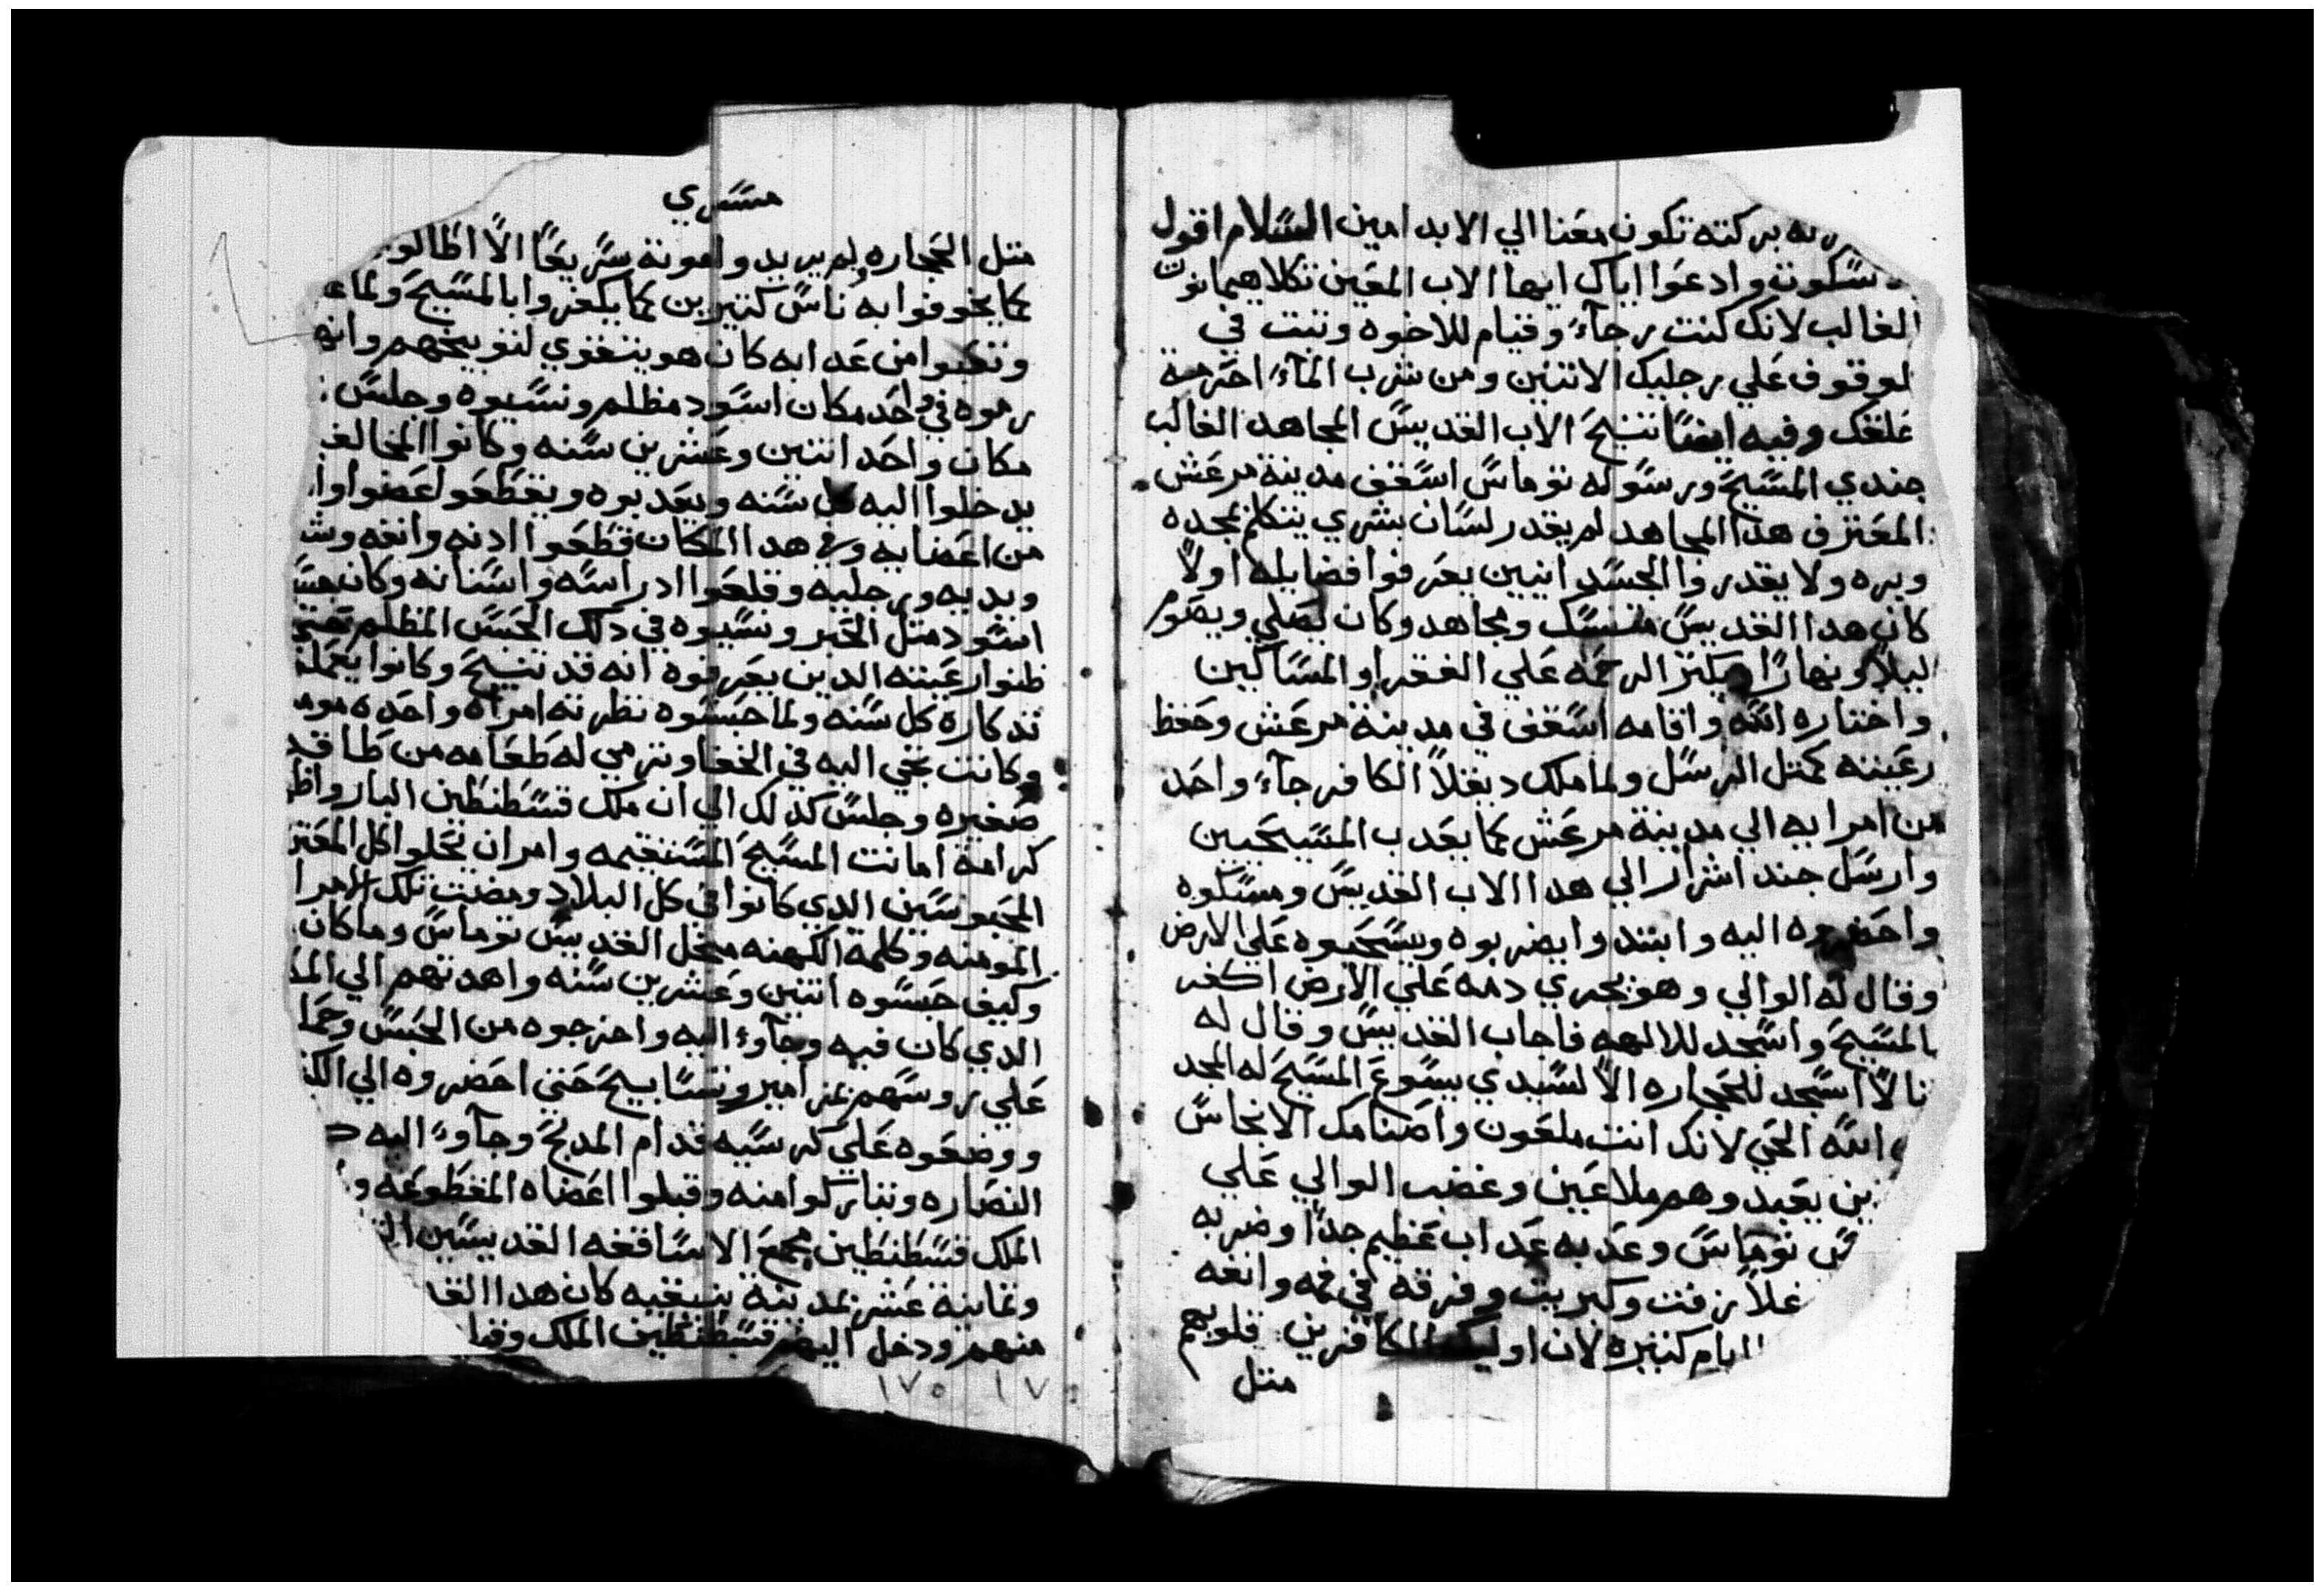 بركته تكون معنا الي الابد امين السلام اقول
سكون وادعوا اياك ايها الاب المعين تكلاهيمانوت
الغالب لانك كنت رجآء وقيام للاخوه وثبت في
لوقوف علي رجليك الاتنين ومن شرب المآء احترمة
علقك وفيه ايضًا تنيح الاب القديس المجاهد الغالب
جندي المسيح ورسوله توماس اسقف مدينة مرعش
المعترف هدا المجاهد لم يقدر لسان بشري يتكلم بمجده
وبره ولا يقدروا الجسدانيين يعرفوا فضايله اولاً
كان هدا القديس متنسك ومجاهد وكان يصلي ويصوم
ليلاً ونهارًا ويكتر الرحمه علي الفقرا والمساكين
واختاره الله واقامه اسقف في مدينة مرعش وحفظ
رعيته كمتل الرسل ولما ملك ديقلا الكافر جآء واحد
من امرايه الي مدينة مرعش كما يعدب المسيحيين
وارسل جند اشرار الي هدا الاب القديس ومسكوه
واحضروه اليه وابتدوا يضربوه ويسحبوه علي الارض
وقال له الوالي وهو يجري دمه علي الارض اكفر
بالمسيح واسجد للالهه فاجاب القديس وقال له
نا لا اسجد للحجاره الا لسيدي يسوع المسيح له المجد
الله الحي لانك انت ملعون واصنامك الانجاس
ين يعبد وهم ملاعين وغضب الوالي علي
س توماس وعدبه عداب عظيم جدًا وضربه
غلا زفت وكبريت وفرقه في فمه وانفه
ايام كتيره لان اوليك الكافرين قلوبهم
متل
مسري
متل الحجاره ولم يريد وا موته سريعًا الا اطالو
كما يخوفوا به ناس كتيرين كما يكفروا بالمسيح ولما
وتعبوا من عدابه كان هو يتقوي لتوبيخهم وانه
رموه في واحد مكان اسود مظلم ونسيوه وجلس
مكان واحد اتنين وعشرين سنه وكانوا المخالف
يدخلوا اليه كل سنه ويعدبوه ويقطعوا عضوا وا
من اعضايه وفي هدا المكان قطعوا ادنه وانفه وش
ويديه ورجليه وقلعوا ادراسه واسنانه وكان جس
اسود متل الحبر ونسيوه في دلك الحبس المظلم حتي
ظنوا رعيته الدين يعرفوه انه قد تنيح وكانوا يعملو
تدكاره كل سنه ولما حبسوه نظرته امراه واحده موم
وكانت تجي اليه في الخفا وترمي له طعامه من طاقه
صغيره وجلس كدلك الي ان ملك قسطنطين البار واظ
كرامة امانت المسيح المستقيمه وامر ان يحلوا كل المعتر
المحبوسين الدي كانوا في كل البلاد ومضت تلك الامرا
المومنه وكلمة الكهنه من اجل القديس توماس وما كان
وكيف حبسوه اتنين وعشرين سنه واهدتهم الي الم
الدي كان فيه وجآوء اليه واخرجوه من الحبس وحما
علي روسهم بمزامير وتسابيح حتي احضروه الي الك
ووضعوه علي كرسيه قدام المدبح وجآوء اليه
النصاره وتباركوا منه وقبلوا اعضاه المقطوعه و
الملك قسطنطين مجمع الاساقفه القديسين الت
وتمانية عشر بمدينة نيقيه كان هدا القد
منهم ودخل اليهم قسطنطين الملك وقبل
١٧٥ ١٧